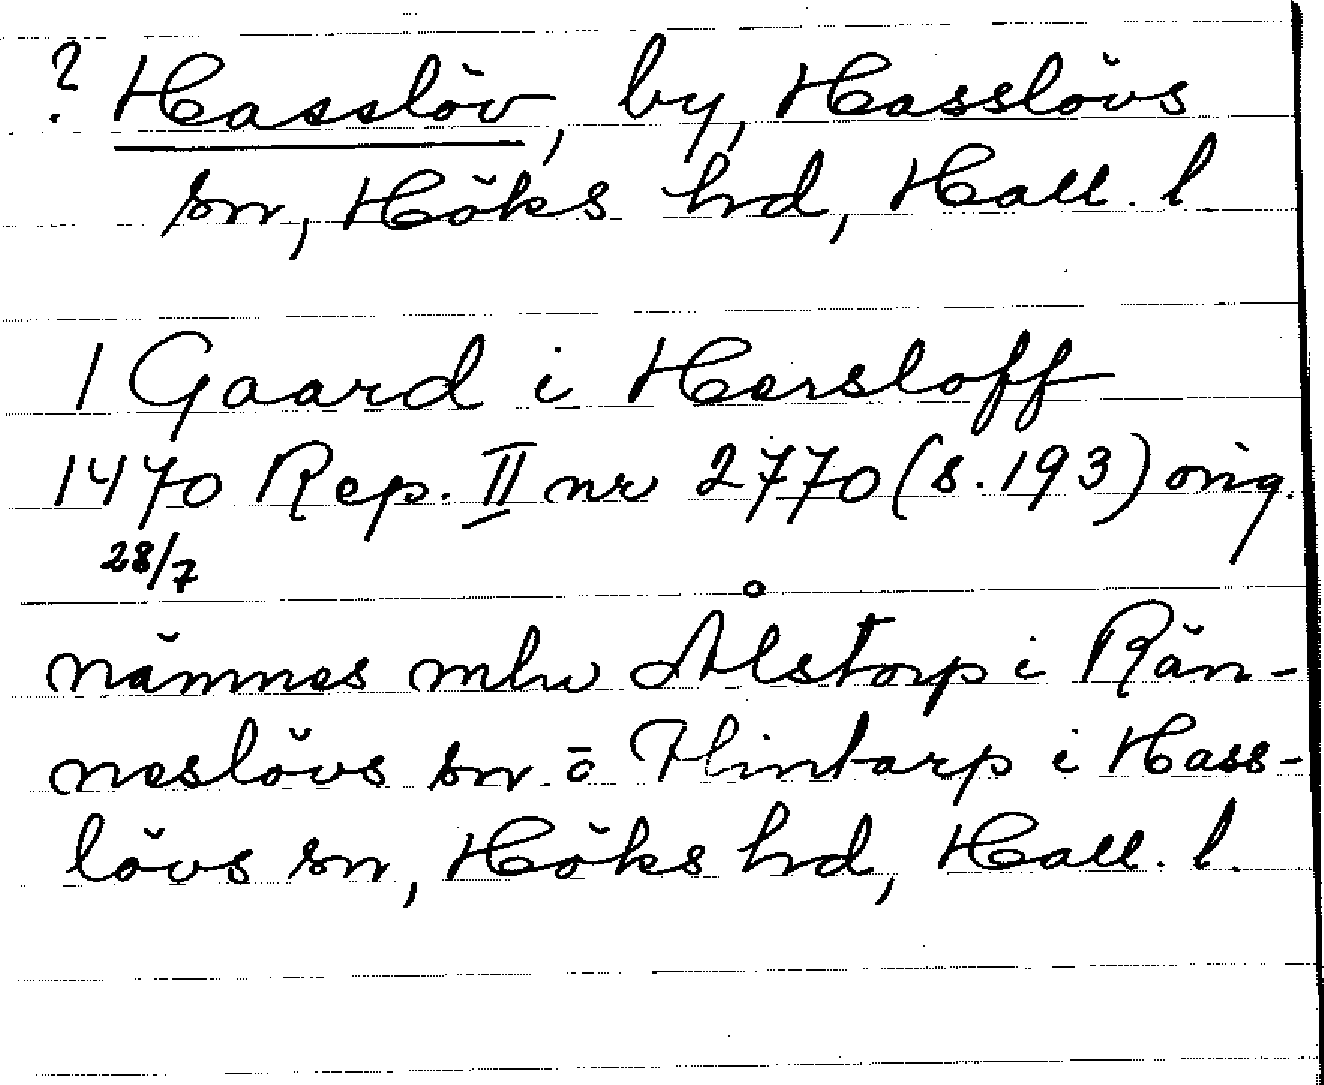 ? Hasslöv, by, Hasslövs
sn, Höks hrd, Hall. l
1 Gaard i Hersloff
1470 Rep. II nr 2770 (s. 193) orig.
28/7
nämnes mlw Ålstorp i Rän-
neslövs sn o Flintarp i Hass-
lövs sn, Höks hrd, Hall. l.